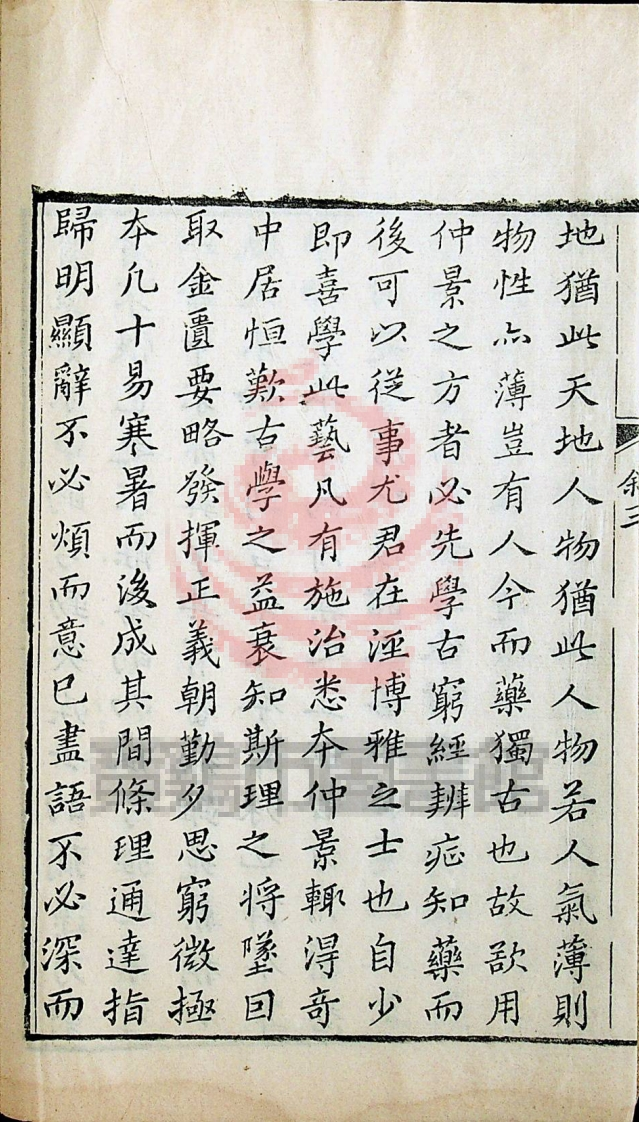 地猶此天地人物猶此人物若人氣薄則
物性亦薄豈有人今而藥獨古也故欲用
仲景之方者必先學古窮經辨症知藥而
後可以從事尤君在涇博雅之士也自少
即喜學此藝凡有施治悉本仲景輒得奇
中居恒歎古學之益衰知斯理之將墜因
取金匱要略發揮正義朝勤夕思窮微極
本凡十易寒暑而後成其間條理通達指
歸明顯辭不必煩而意已盡語不必深而
敘三
寶鷄市圖書館